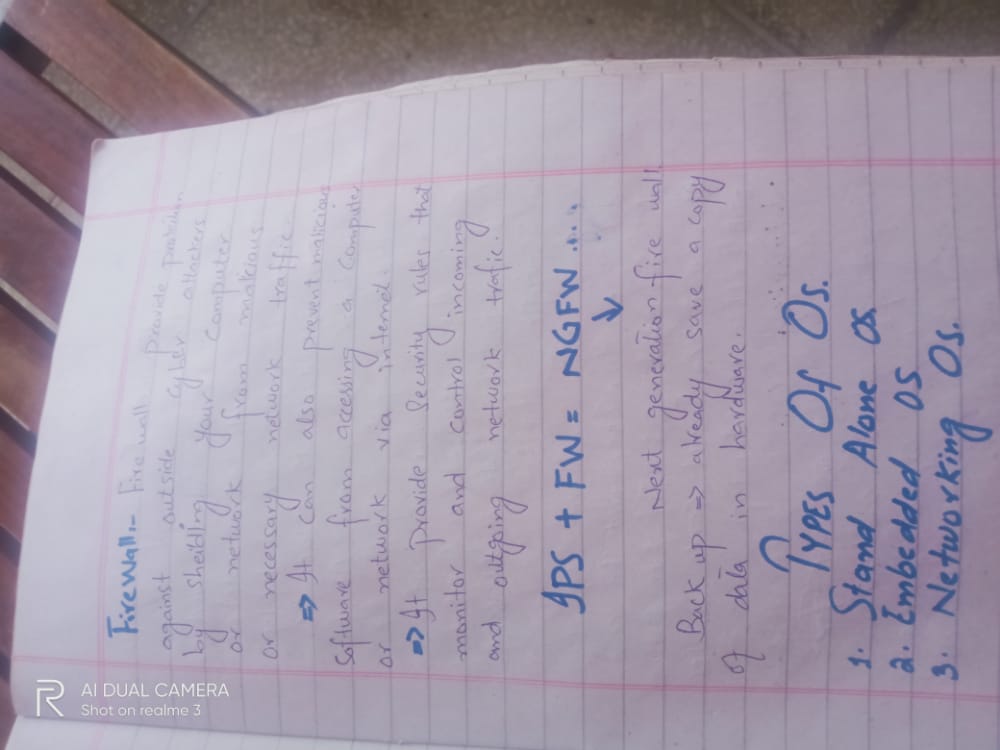 Firewall:- Firewall provide protection
against outside cyber attackers
by sheilding your computer
or network from malicious
or necessary network traffic.
⇒ It can also prevent malicious
Software from accessing a computer
or network via internet.
⇒ It provide Security rules that
monitor and control incoming
and outgoing network trafic.
IPS + FW = NGFW ....
↓
Next generation fire wall
Back up ⇒ already save a copy
of data in hardware.
TYPES Of Os.
1. Stand Alone OS
2. Imbedded OS
3. Networking Os.
AI DUAL CAMERA
Shot on realme 3